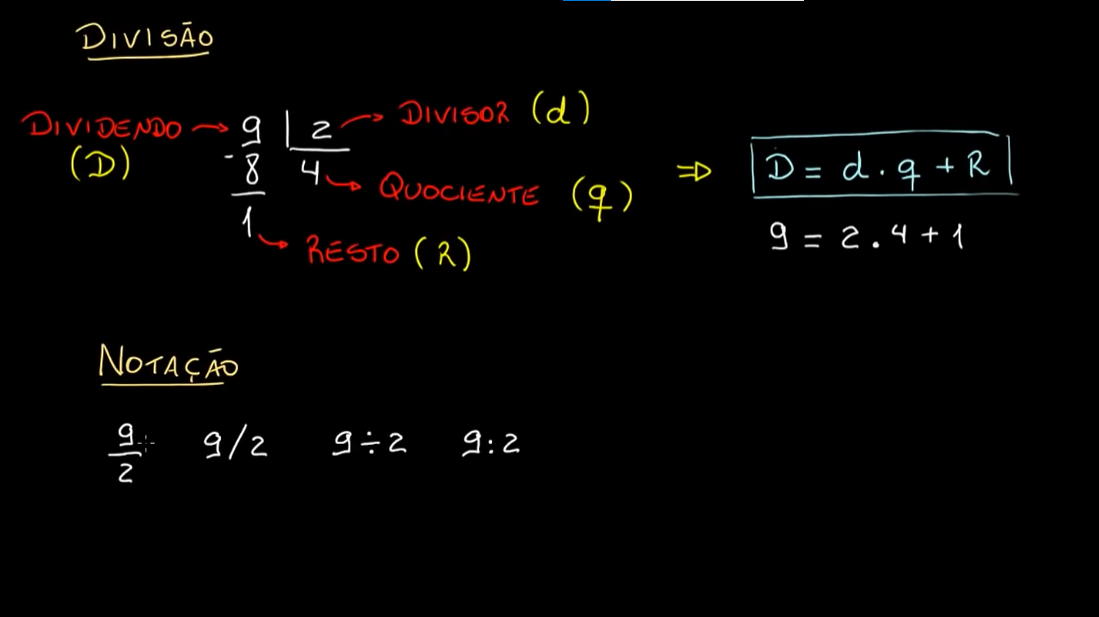 DIVISÃO
DIVIDENDO → 9 | 2 → DIVISOR (d)
(D) - 8 4 → QUOCIENTE (q) ⇒ D = d . q + R
1 → RESTO (R) 9 = 2 . 4 + 1
NOTAÇÃO
9/2 9/2 9÷2 9:2